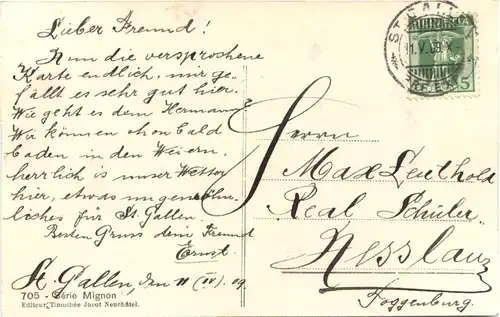 Lieber Freund!
Nun die versprochene
Karte endlich, mir ge-
fällt es sehr gut hier.
Wie geht es dem Hermann?
Wir können schon bald
baden in den Weiern,
herrlich is unser Wetter
hier, etwas ungewöhn-
liches für St. Gallen.
Besten Gruss dein Freund
Ernst.
St. Gallen, den 11 (IV) 09.
705 - Série Mignon
Editeur Timothée Jacot Neuchâtel.
ST. GALLEN
11.V.09.X-
5
Herrn
Max Leuthold
Real Schüler
Nesslau
Toggenburg.